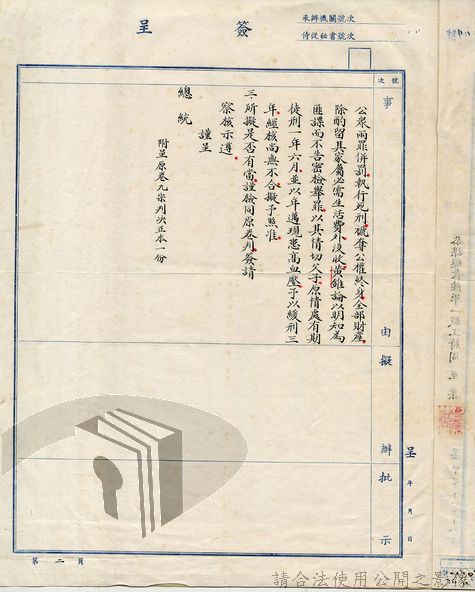 承辦機關號次
侍從秘書號次
簽呈
號次
事由
擬辦
批示
公眾兩罪併罰執行死刑褫奪公權終身全部財產
除酌留其家屬必需生活費外沒收黃錐論以明知為
匪諜而不告密檢舉罪以其情切父子原情處有期
徒刑一年六月並以年邁現患高血壓予以緩刑三
年經核尚無不合擬予照准
三所擬是否有當謹檢同原卷判簽請
察核示遵
謹呈
總統
附呈原卷九宗判決正本一份
呈 年 月 日
第二頁
請合法使用公開之影像